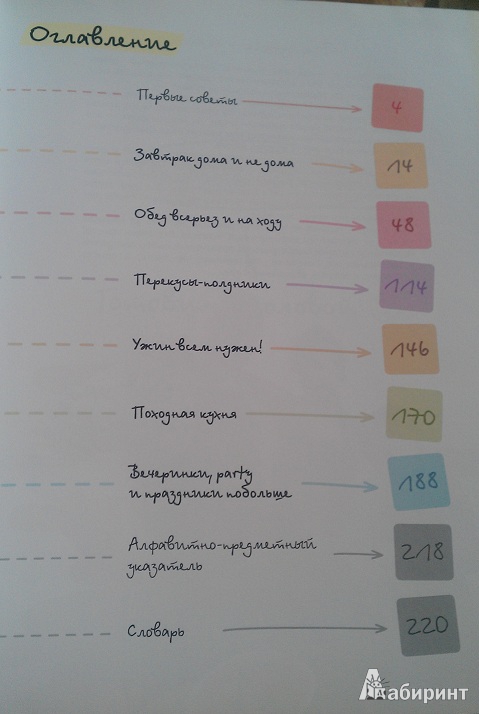 Оглавление
Первые советы 4
Завтрак дома и не дома 14
Обед всерьез и на ходу 48
Перекусы-полдники 114
Ужин всем нужен! 146
Походная кухня 170
Вечеринки, party
и праздники побольше 188
Алфавитно-предметный
указатель 218
Словарь 220
Лабиринт